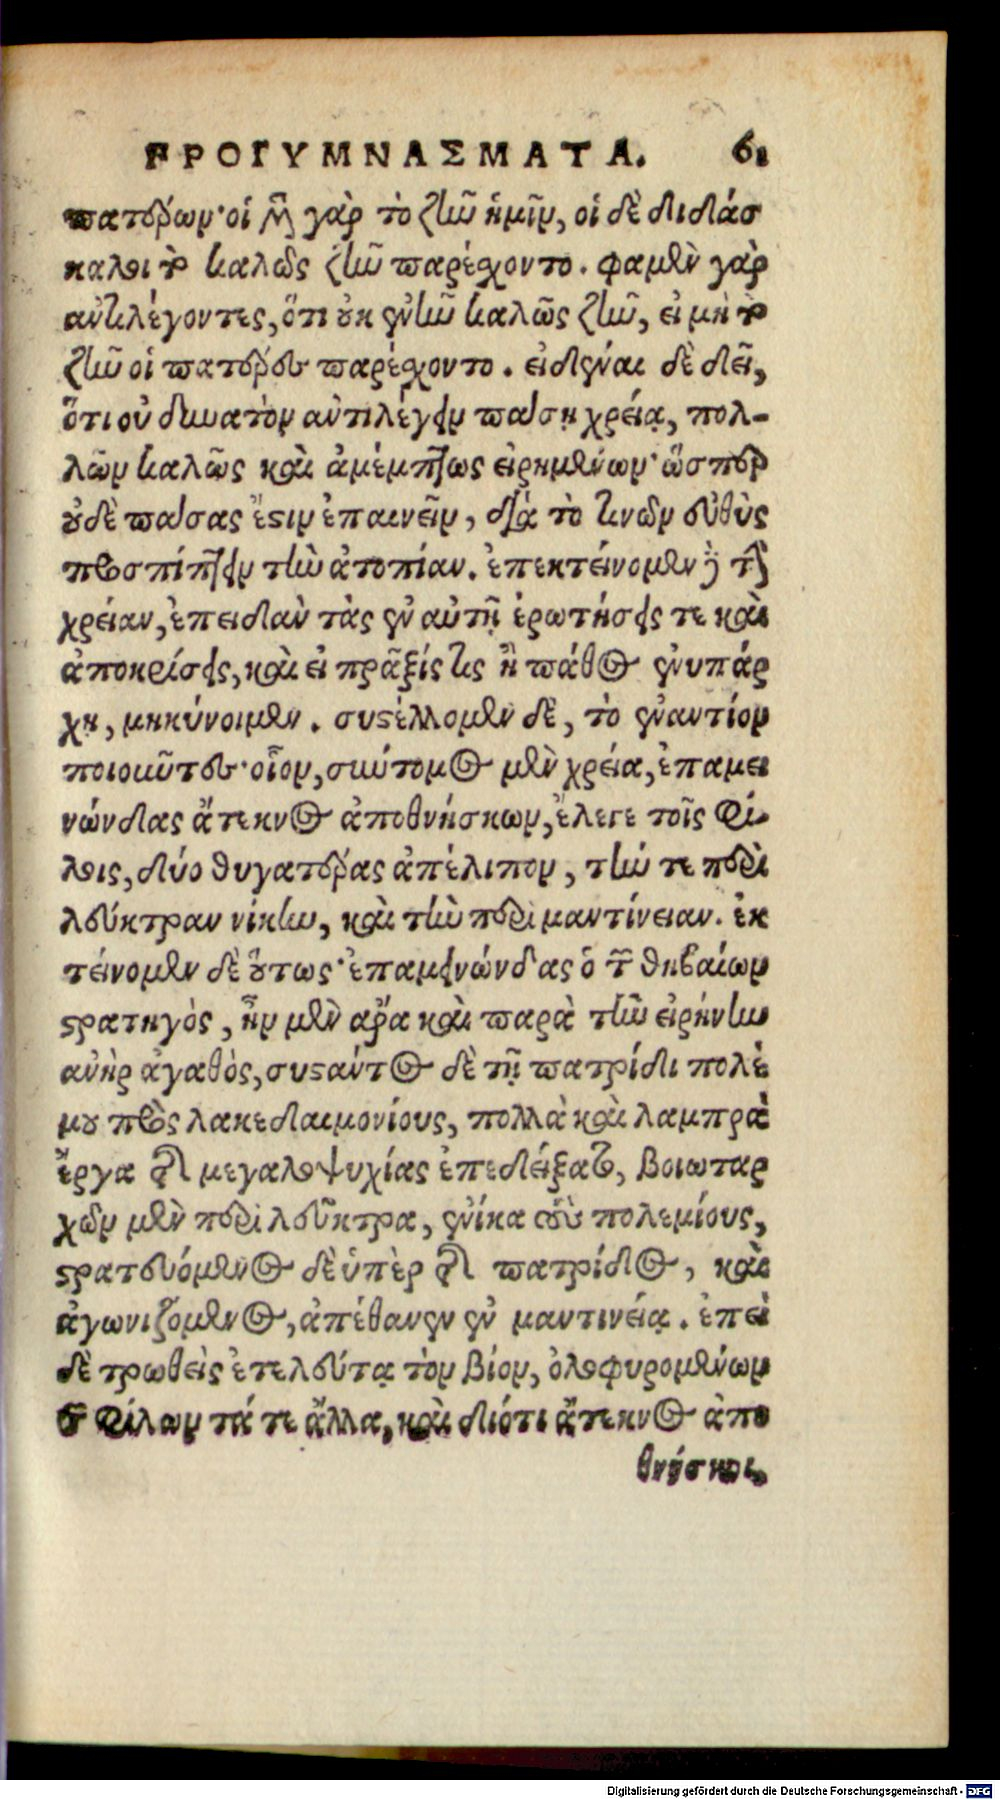 ΠΡΟΓΥΜΝΑΣΜΑΤΑ. 61
πατέρων· οἱ μὲν γὰρ τὸ ζῆν ἡμῖν, οἱ δὲ διδάσ
καλοι τὸ καλῶς ζῆν παρέχοντο. φαμὲν γὰρ
ἀντιλέγοντες, ὅτι οὐκ ἐνῆν καλῶς ζῆν, εἰ μὴ τὸ
ζῆν οἱ πατέρες παρέχοντο. εἰδέναι δὲ δεῖ,
ὅτι οὐ δυνατὸν ἀντιλέγειν πάσῃ χρείᾳ, πολ-
λῶν καλῶς καὶ ἀμέμπτως εἰρημένων· ὥσπερ
οὐδὲ πάσας ἔστιν ἐπαινεῖν, διὰ τὸ τινῶν εὐθὺς
προσπίπτειν τὴν ἀτοπίαν. ἐπεκτείνομεν δὲ τὴν
χρείαν, ἐπειδὰν τὰς ἐν αὐτῇ ἐρωτήσεις τε καὶ
ἀποκρίσεις, καὶ εἰ πρᾶξίς τις ἢ πάθος ἐνυπάρ
χῃ, μηκύνοιμεν. συστέλλομεν δὲ, τὸ ἐναντίον
ποιοῦντες· οἷον, σύντομος μὲν χρεία, ἐπαμει
νώνδας ἄτεκνος ἀποθνήσκων, ἔλεγε τοῖς φί-
λοις, δύο θυγατέρας ἀπέλιπον, τήν τε περὶ
λεύκτραν νίκην, καὶ τὴν περὶ μαντίνειαν. ἐκ
τείνομεν δὲ οὕτως· ἐπαμεινώνδας ὁ τῶν θηβαίων
στρατηγὸς, ἦν μὲν ἄρα καὶ παρὰ τὴν εἰρήνην
ἀνὴρ ἀγαθὸς, συστάντος δὲ τῇ πατρίδι πολέ
μου πρὸς λακεδαιμονίους, πολλὰ καὶ λαμπρὰ
ἔργα τῆς μεγαλοψυχίας ἐπεδείξατο, βοιωταρ
χῶν μὲν περὶ λεῦκτρα, ἐνίκα τοὺς πολεμίους,
στρατευόμενος δὲ ὑπὲρ τῆς πατρίδος, καὶ
ἀγωνιζόμενος, ἀπέθανεν ἐν μαντινείᾳ. ἐπεὶ
δὲ τρωθεὶς ἐτελεύτα τὸν βίον, ὀλοφυρομένων
τῶν φίλων τά τε ἄλλα, καὶ διότι ἄτεκνος ἀπο
θνήσκοι,
Digitalisierung gefördert durch die Deutsche Forschungsgemeinschaft - DFG